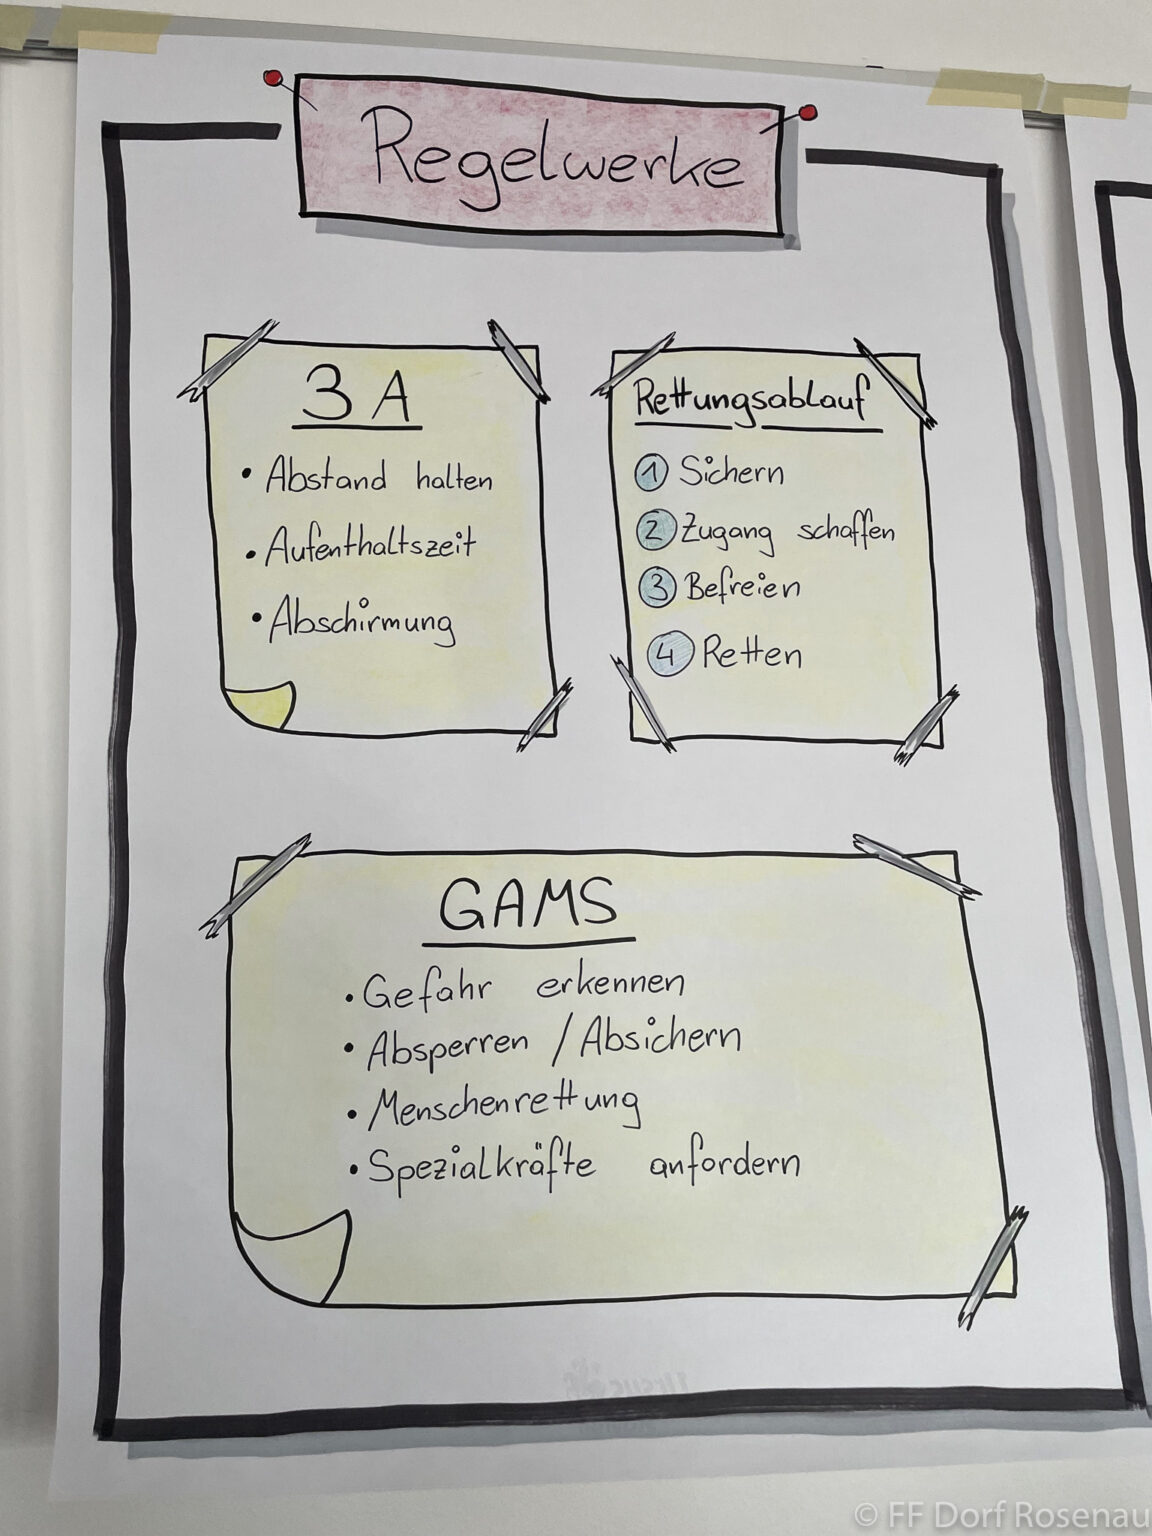 Regelwerke
3 A
• Abstand halten
• Aufenthaltszeit
• Abschirmung
Rettungsablauf
1 Sichern
2 Zugang schaffen
3 Befreien
4 Retten
GAMS
• Gefahr erkennen
• Absperren / Absichern
• Menschenrettung
• Spezialkräfte anfordern
© FF Dorf Rosenau